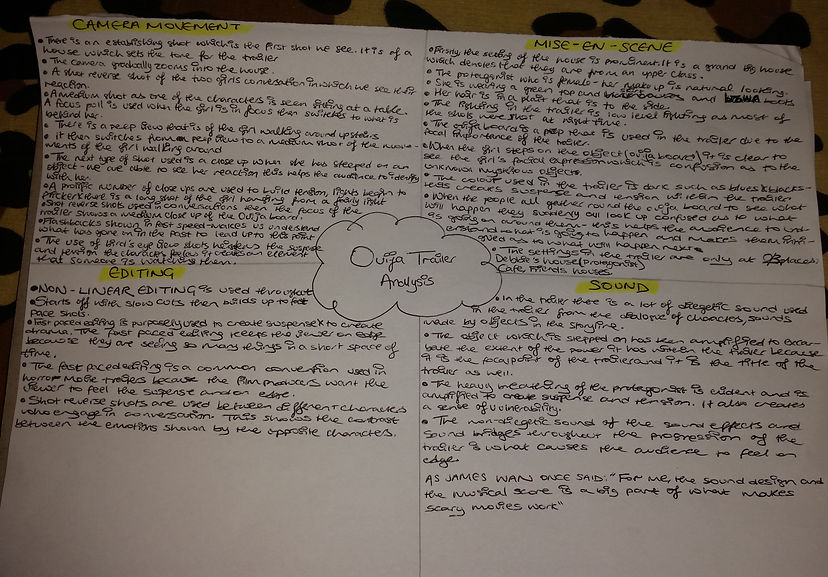 CAMERA MOVEMENT
• There is an establishing shot which is the first shot we see. It is of a
house which sets the tone for the trailer
• The camera gradually zooms into the house.
• A shot reverse shot of the two girls conversation in which we see their
reaction.
• A medium shot as one of the characters is seen sitting at a table.
A focus poll is used when the girl is in focus then switches to what is
behind her.
• There is a peep view that is of the girl walking around upstairs
• it then switches from a peep view to a medium shot of the move-
ments of the girl walking around
• The next type of shot used is a close up when she has stepped on an
object - we are able to see her reaction this helps the audience to identify
with her.
• A prolific number of close ups are used to build tension, lights begin to
flicker there is a long shot of the girl hanging from a fairly light
• Shot reverse shots used in conversations then the focus of the
trailer shows a medium close up of the Ouija board
• Flashbacks shown in fast speed - makes us understand
what has gone on in the past to lead up to this point
• The use of bird's eye view shots heightens the suspense
and tension the character feels as it creates an element
that someone is watching them.
MISE-EN-SCENE
• Firstly the setting of the house is prominent. It is a grand big house
which denotes that they are from an upper class.
• The protagonist who is female - her makeup is natural looking.
• She is wearing a green top and and boots
• Her hair is in a plait that is to the side.
• The lighting in the trailer is low level lighting as most of
the shots were shot at night time.
• The ouija board is a prop that is used in the trailer due to the
focal importance of the trailer.
• When the girl steps on the object (ouija board) it is clear to
see the girl's facial expression which is confusion as to the
unknown mysterious objects.
• The colour used in the trailer is dark such as blues & blacks -
this creates suspense and tension within the trailer
• When the people all gather round the ouija board to see what
will happen they suddenly all look up confused as to what
is going on around them - this helps the audience to und-
erstand what is going to happen and makes them intri-
gued as to what will happen next.
• The settings in
the trailer are only at 3 places:
Debbie's house (protagonist)
Cafe, friends houses
Ouija Trailer
Analysis
EDITING
• NON-LINEAR EDITING is used throughout
• Starts off with slow cuts then builds up to fast
pace shots.
• Fast paced editing is purposely used to create suspense & to create
drama. The fast paced editing keeps the viewer on edge
because they are seeing so many things in a short space of
time.
• The fast paced editing is a common convention used in
horror movie trailers because the film producers want the
viewer to feel the suspense and on edge.
• Shot reverse shots are used between different characters
who engage in conversation. This shows the contrast
between the emotions shown by the opposite characters.
SOUND
• In the trailer there is a lot of diegetic sound used
in the trailer from the dialogue of characters, sounds
made by objects in the storyline.
• The object which is stepped on has been amplified to exacer-
bate the extent of the power it has within the trailer because
it is the focal point of the trailer and it is the title of the
trailer as well.
• The heavily breathing of the protagonist is evident and is
amplified to create suspense and tension. It also creates
a sense of vulnerability.
• The non-diegetic sound of the sound effects and
sound bridges throughout the progression of the
trailer is what causes the audience to feel on
edge.
AS JAMES WAN ONCE SAID: "For me, the sound design and
the musical score is a big part of what makes
scary movies work"